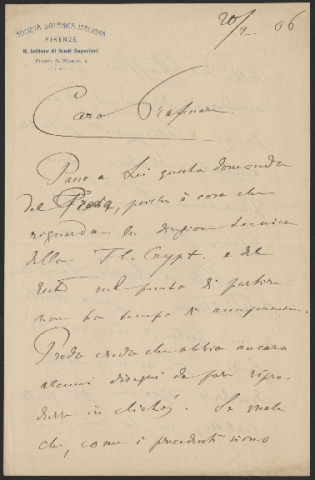 SOCIETÀ BOTANICA ITALIANA
FIRENZE
R. Istituto di Studi Superiori
Piazza S. Marco, 2
20/2 06
Caro
Passo a Lei questa domanda
del Preda, poiché è cosa che
riguarda la direzione tecnica
della Fl. Crypt. e del
sul punto di partire
non ho tempo di
Preda crede che abbia ancora
alcuni disegni da far ripro-
durre in clichés. Se vuole
che, come i precedenti siano